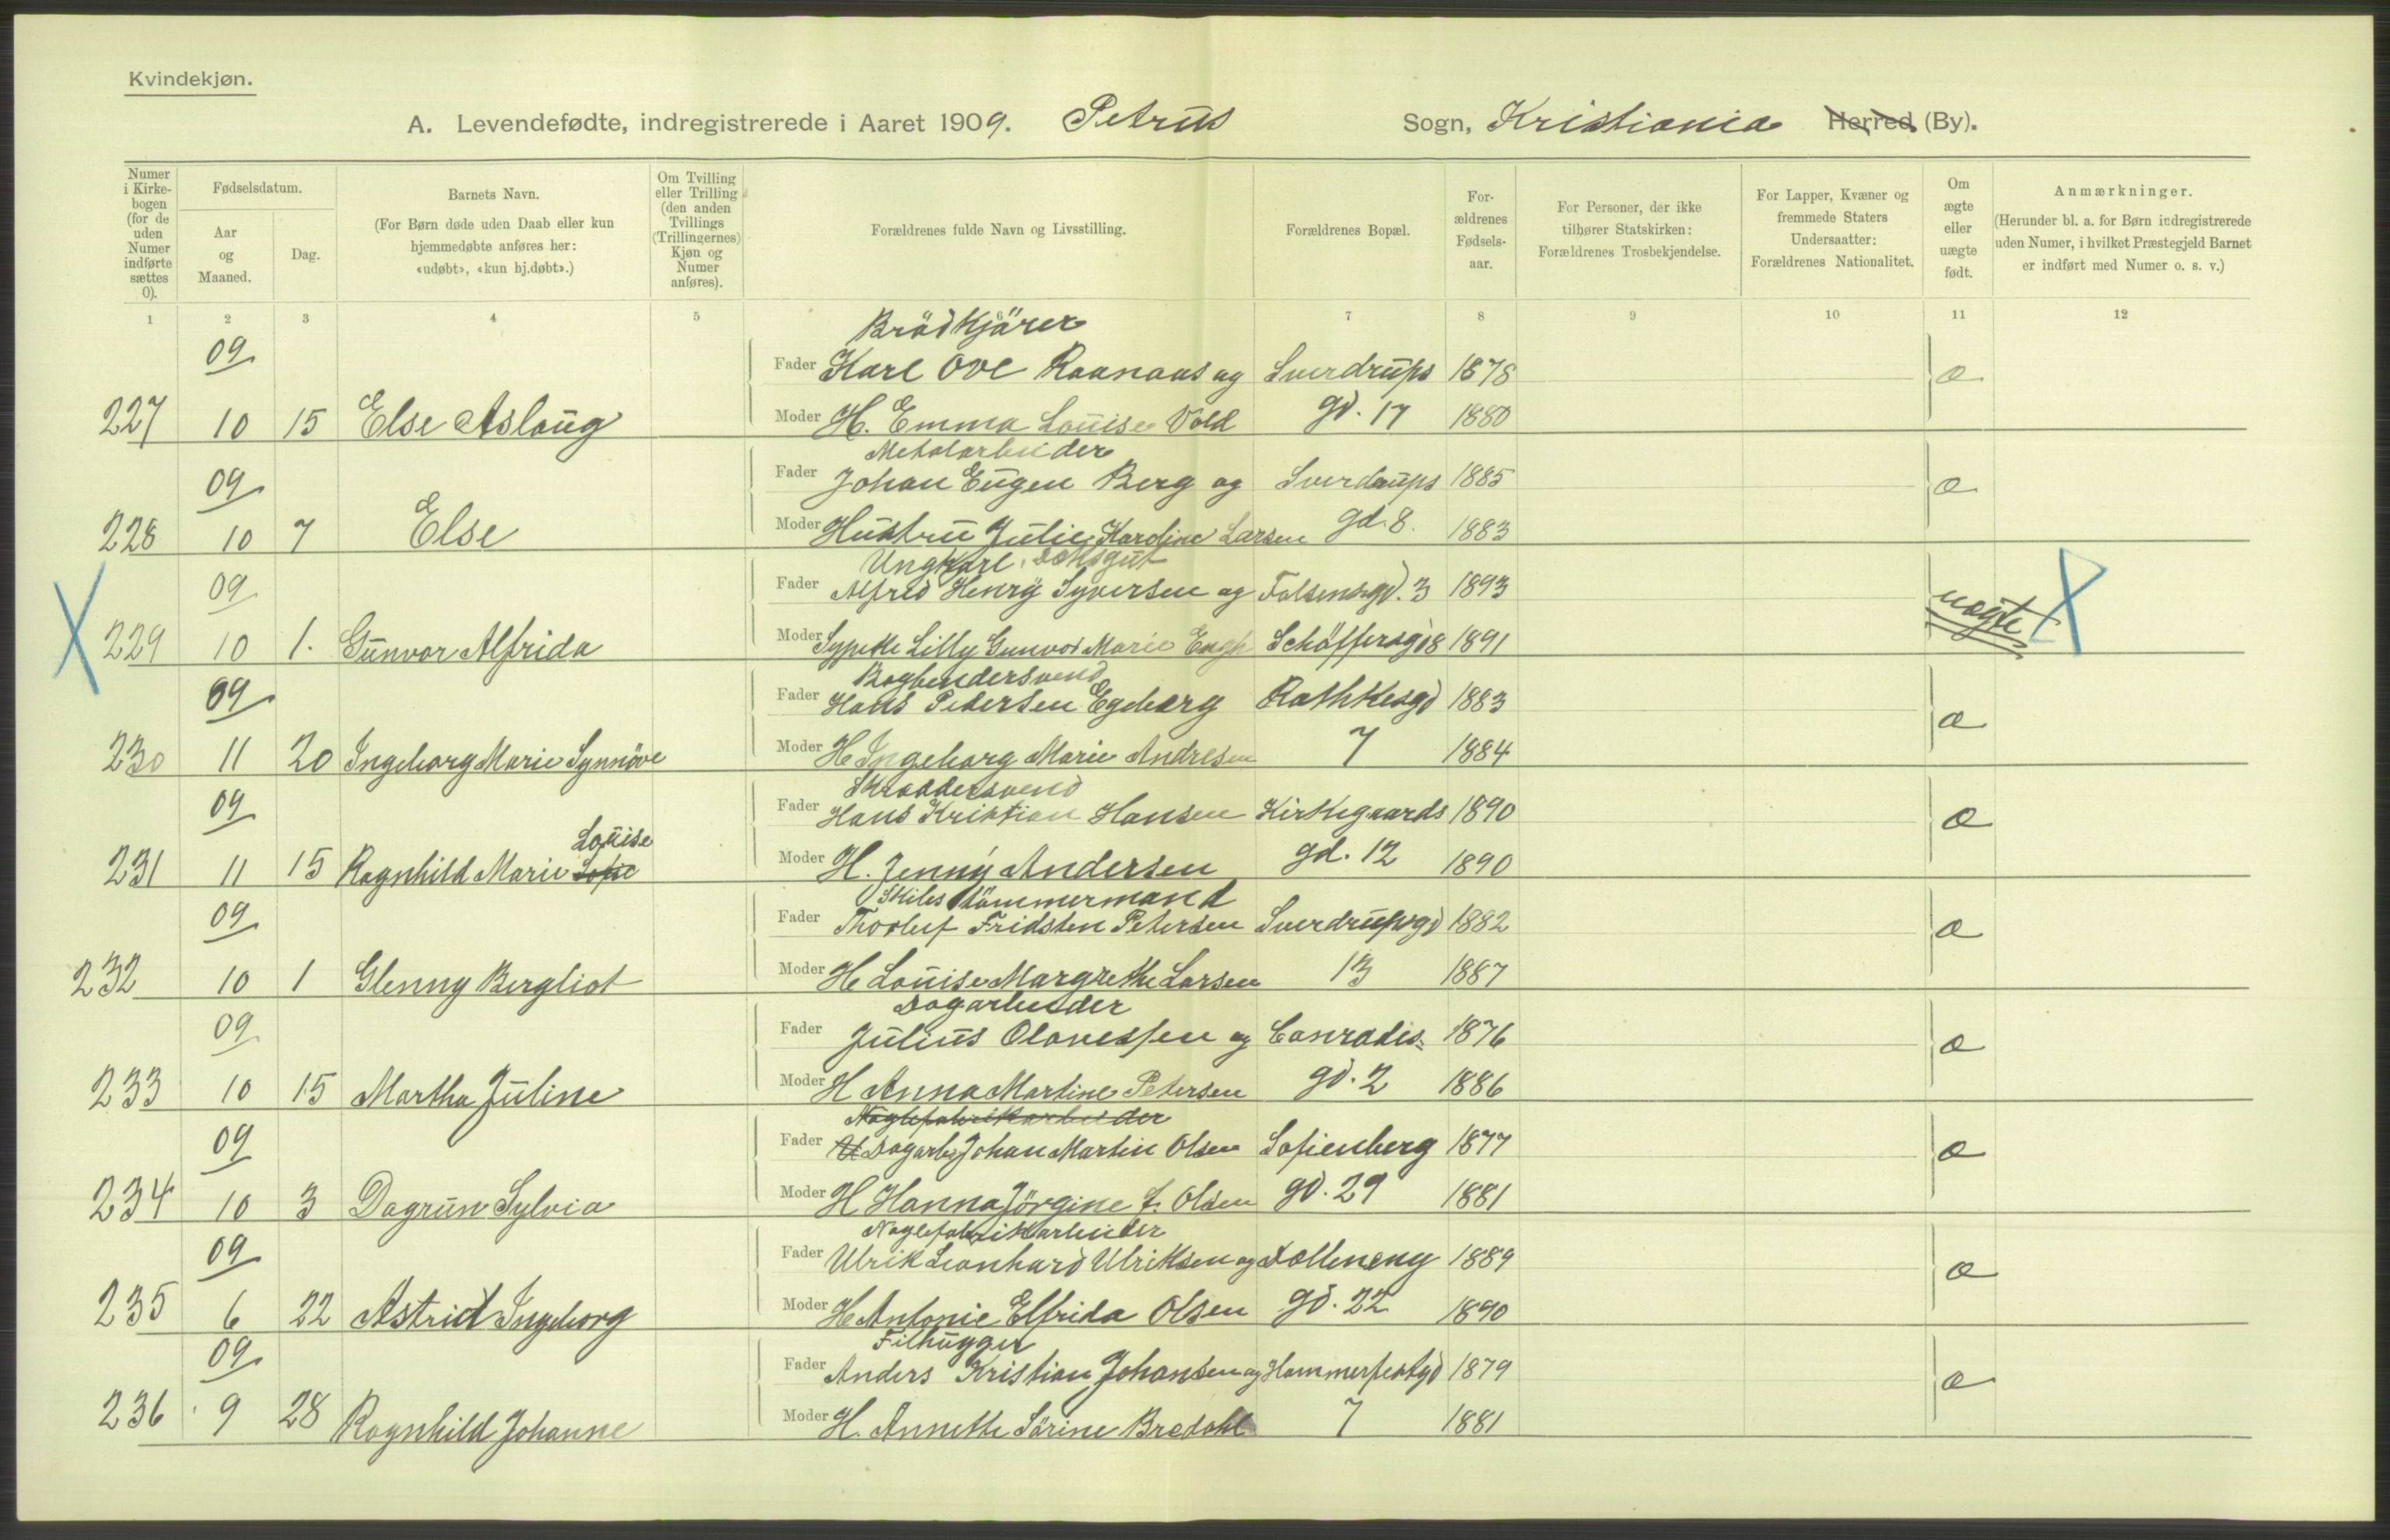 Kvindekjøn.
A. Levendefødte, indregistrerede i Aaret 1909. Petrus Sogn, Kristiania Herred (By).
Numer i Kirkebogen (for de uden Numer indførte sættes 0).
Fødselsdatum.
Aar og Maaned.
Dag.
Barnets Navn.
(For Børn døde uden Daab eller kun hjemmedøbte anføres her: «udøbt», «kun hj.døbt».)
Om Tvilling eller Trilling (den anden Tvillings (Trillingernes) Kjøn og Numer anføres).
Forældrenes fulde Navn og Livsstilling.
Forældrenes Bopæl.
Forældrenes Fødselsaar.
For Personer, der ikke tilhører Statskirken: Forældrenes Trosbekjendelse.
For Lapper, Kvæner og fremmede Staters Undersaatter: Forældrenes Nationalitet.
Om ægte eller uægte født.
Anmærkninger.
(Herunder bl. a. for Børn indregistrerede uden Numer, i hvilket Præstegjeld Barnet er indført med Numer o. s. v.)
1 2 3 4 5 6 7 8 9 10 11 12
Brödkjörer
09 Fader Karl Ove Raanaas og Sverdrups 1878 æ
227 10 15 Else Aslaug Moder H. Emma Louise Vold gd. 17 1880
Metalarbeider
09 Fader Johan Eugen Berg og Sverdrups 1885 æ
228 10 7 Else Moder Hustru Julie Karoline Larsen gd. 8. 1883
Ungkarl,
09 Fader Alfred Henry Syversen og Falsensgd. 3 1893 uægte
X 229 10 1. Gunvor Alfrida Moder Sypike Lilly Gunvor Marie Engh Schäffersgd 8 1891 X
Bogbindersvend
09 Fader Hans Pedersen Egeberg Rathkesgd 1883 æ
230 11 20 Ingeborg Marie Synnöve Moder H Ingeborg Marie Andresen 7 1884
Skraddersvend
09 Fader Hans Kristian Hansen Kirkegaards 1890 æ
Louise
231 11 15 Ragnhild Marie Sofie Moder H. Jenny Andersen gd. 12 1890
Skibstömmermand
09 Fader Thorleif Fridsten Petersen Sverdrupsgd 1882 æ
232 10 1 Glenny Bergliot Moder H Louise Margrethe Larsen 13 1887
Dagarbeider
09 Fader Julius Olavessen og Conradis= 1876 æ
233 10 15 Martha Juline Moder H Anna Martine Petersen gd. 2 1886
Naglefabrikarbeider
09 Fader U Dagarb. Johan Martin Olsen Sofienberg 1877 æ
234 10 3 Dagrun Sylvia Moder H Hanna Jörgine f. Olsen gd. 29 1881
Naglefabrikarbeider
09 Fader Ulrik Leonhard Ulriksen og Dælleneng 1889 æ
235 6 22 Astrid Ingeborg Moder H Antonie Elfrida Olsen gd. 22 1890
Filhugger
09 Fader Anders Kristian Johansen og Hammerfestgd 1879 æ
236 9 28 Ragnhild Johanne Moder H. Annette Sörine Bredahl 7 1881